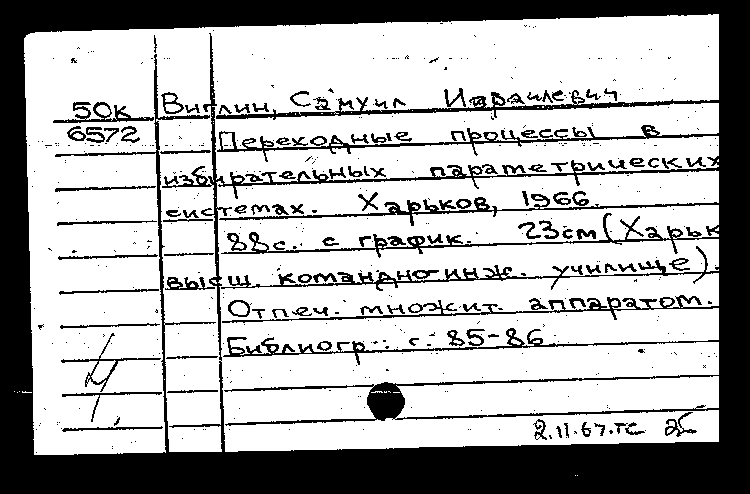 50к Виглин, Самуил Израилевич
6572 Переходные процессы в
избирательных параметрических
системах. Харьков, 1966.
88с. с график. 23см (Харьк
высш. командно-инж. училище).
Отпеч. множит. аппаратом.
Библиогр.: с. 85-86
Ч.
2.11.67.тс